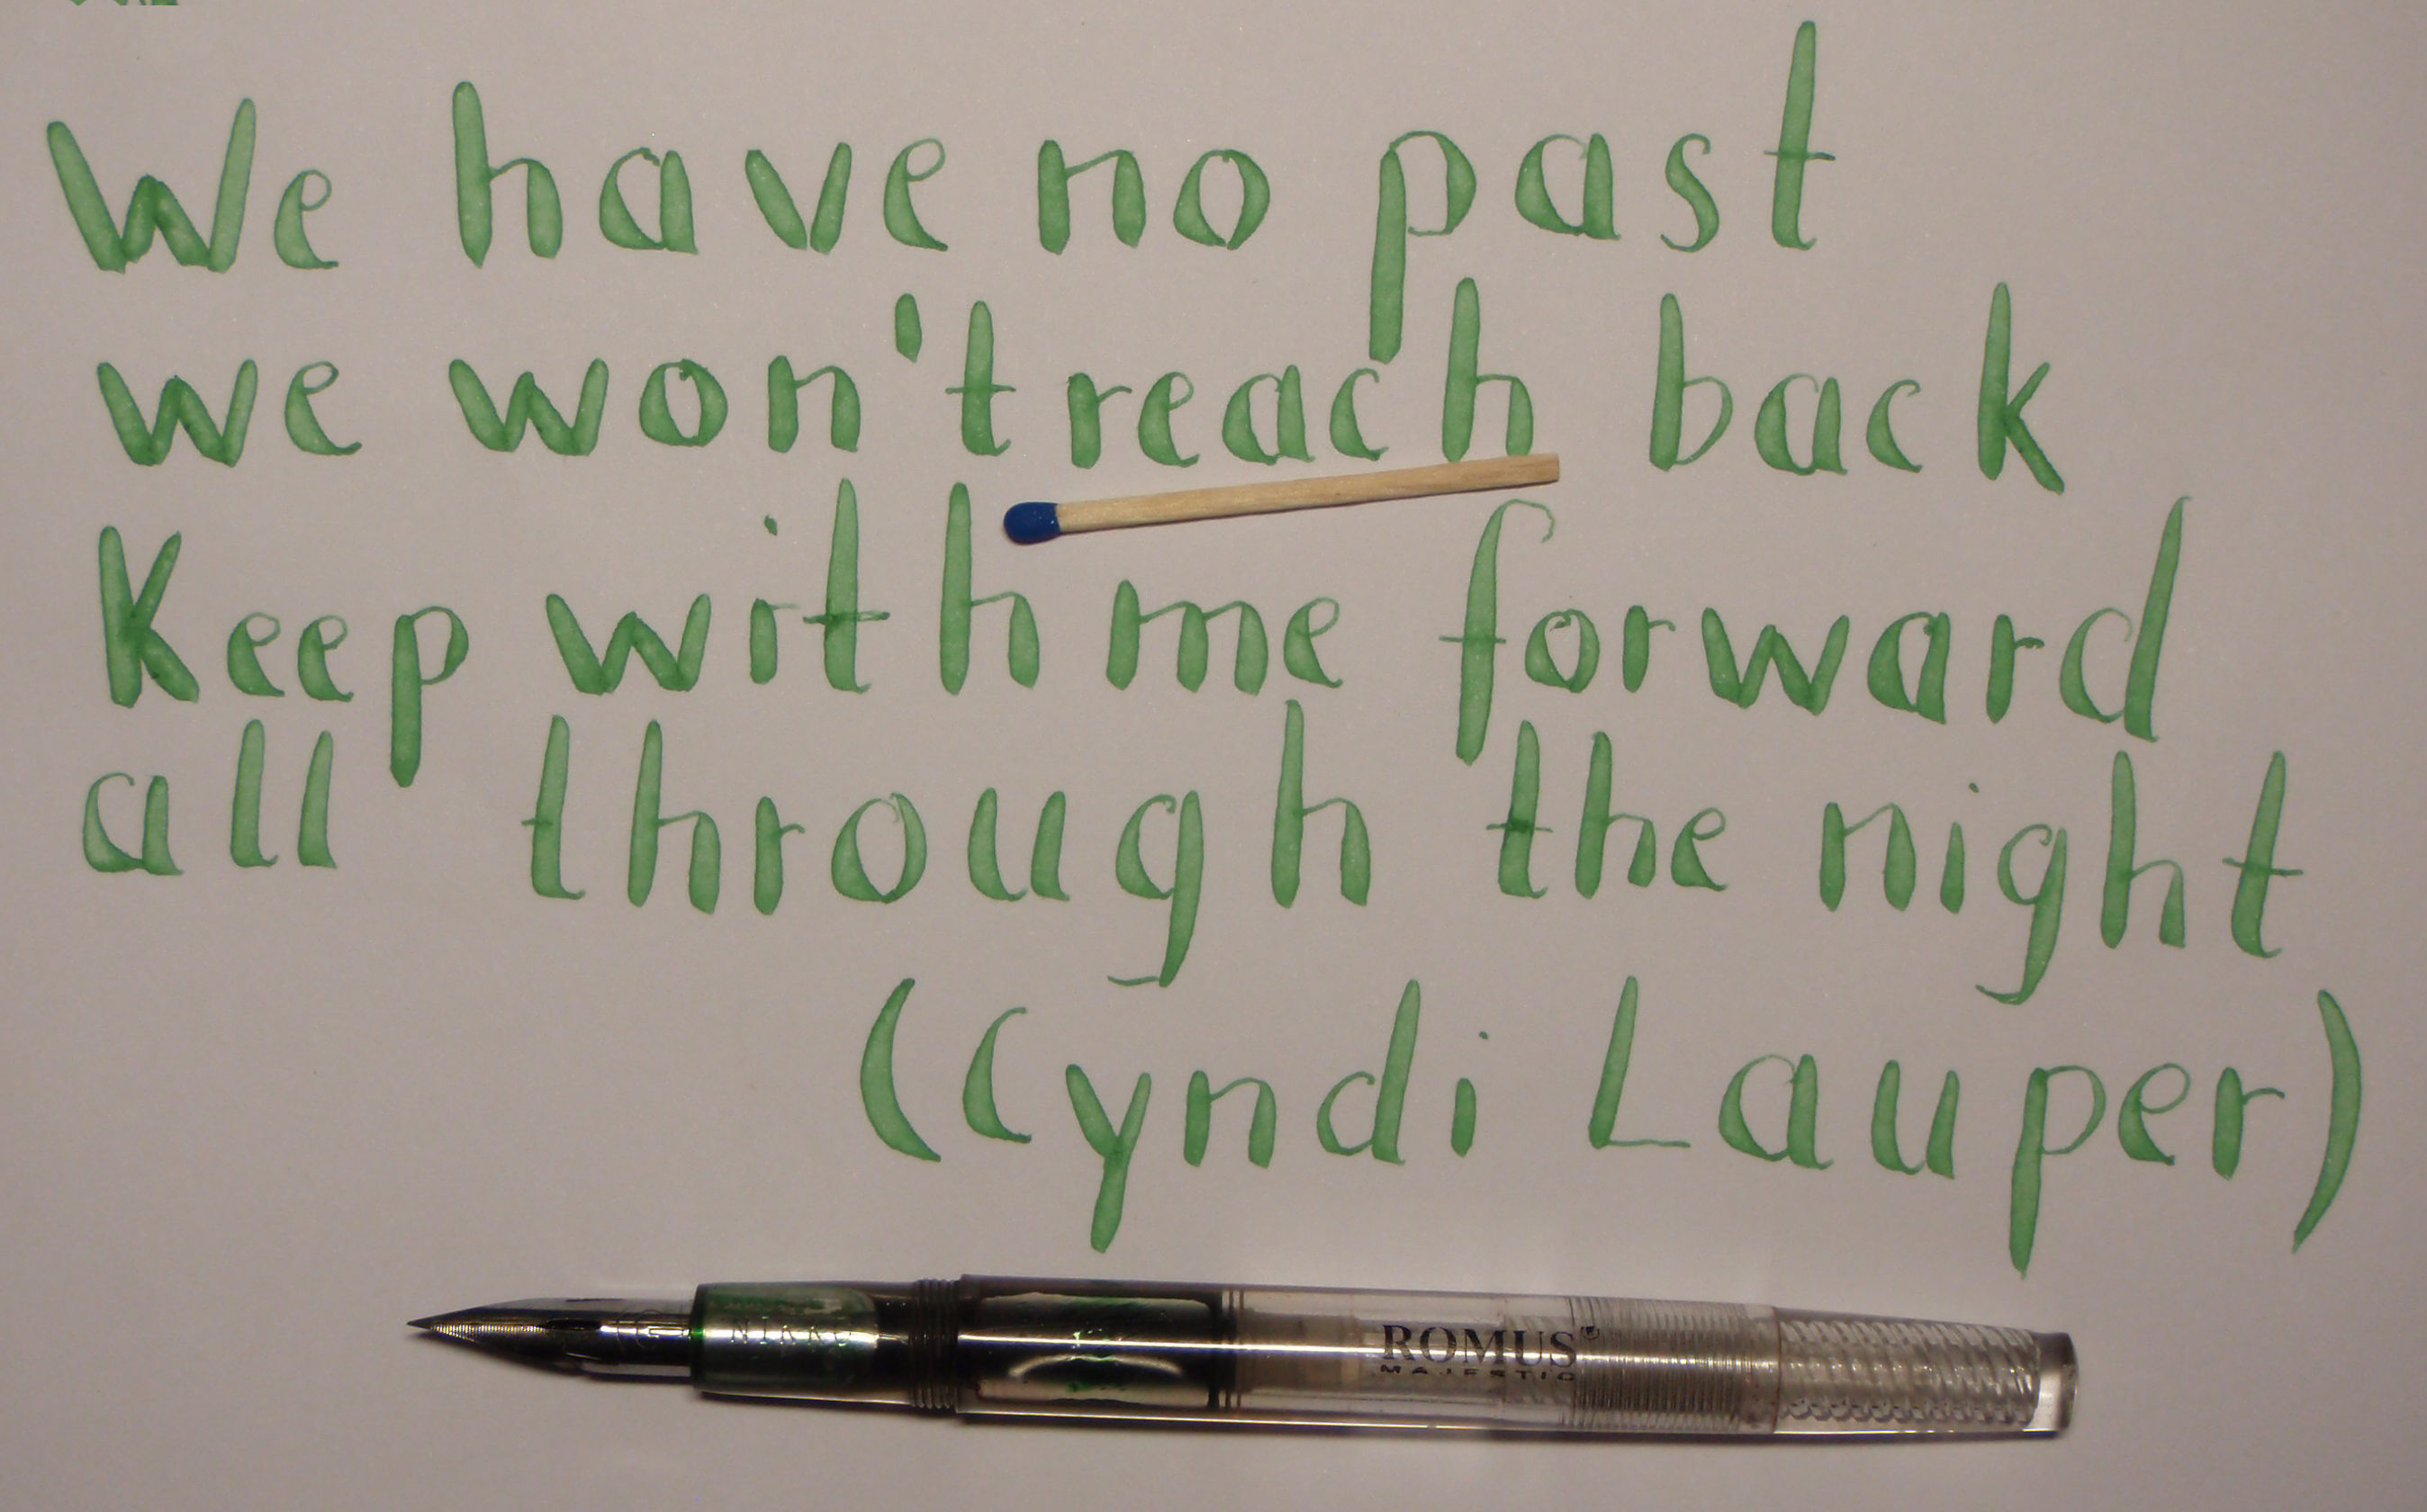 We have no past
we won't reach back
Keep with me forward
all through the night
(Cyndi Lauper)
NIKKO
ROMUS
MAJESTIC